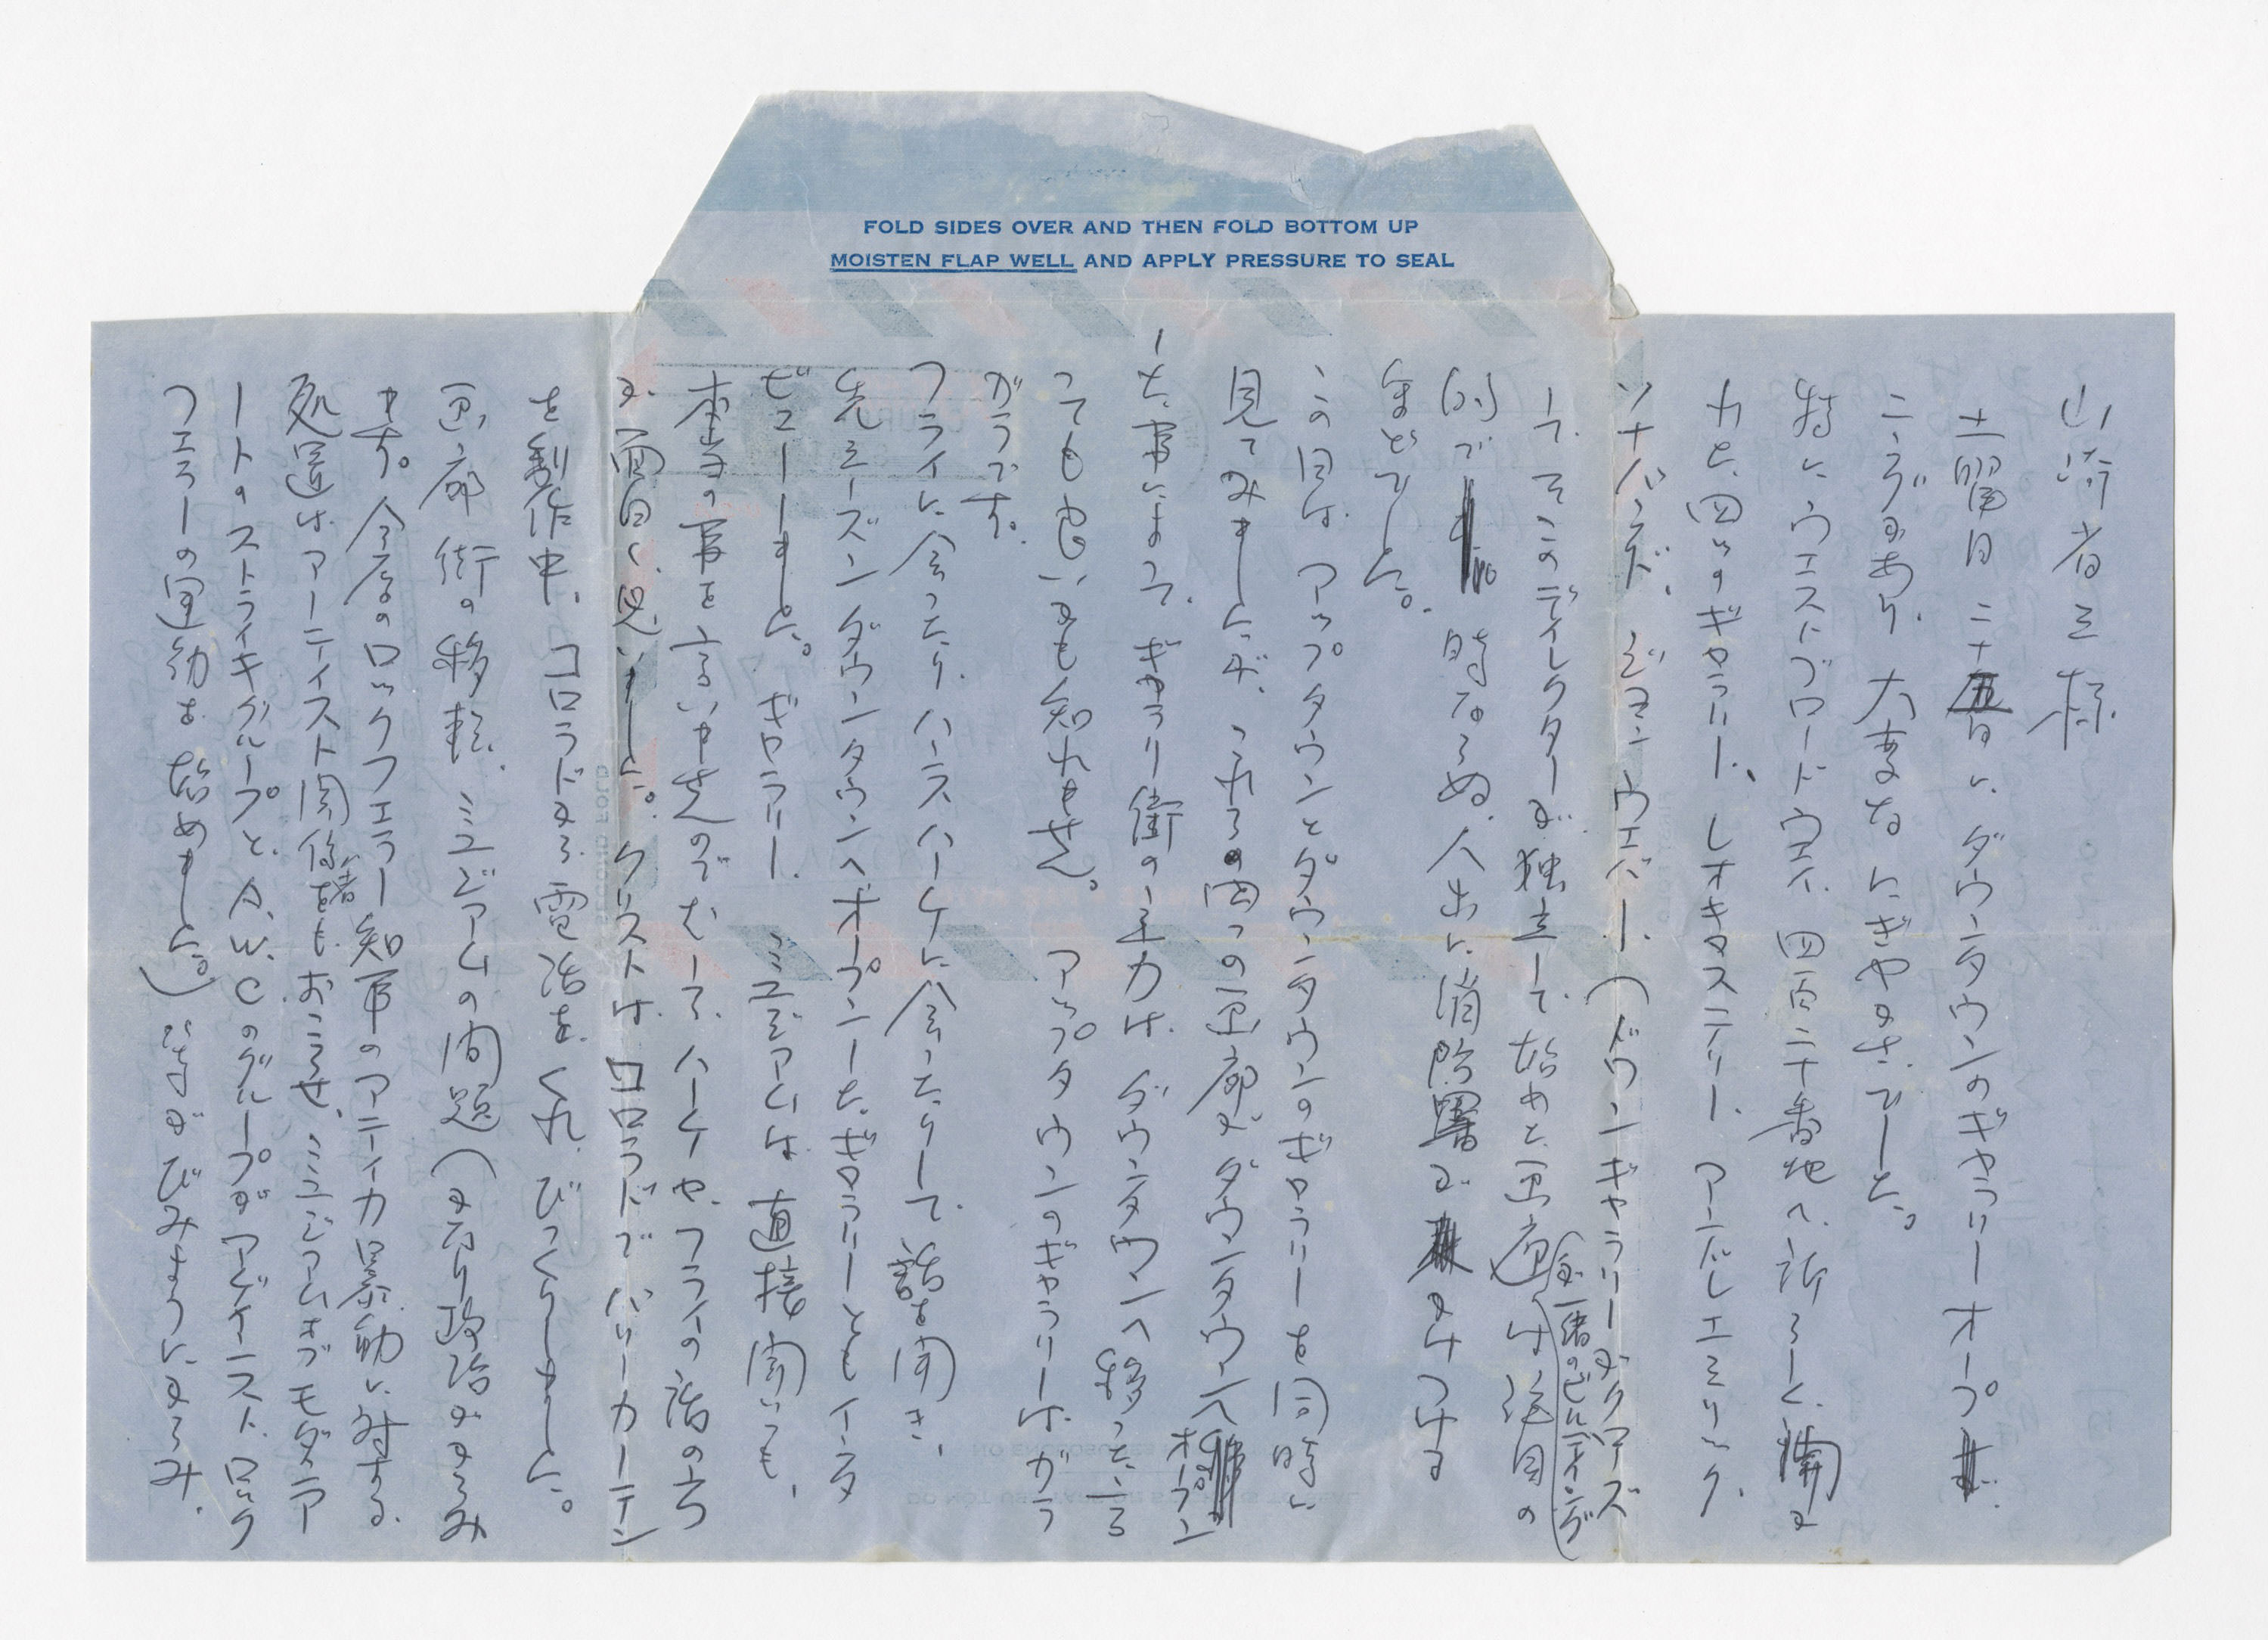 FOLD SIDES OVER AND THEN FOLD BOTTOM UP
MOISTEN FLAP WELL AND APPLY PRESSURE TO SEAL
山崎省三様
土曜日二十五日に、ダウンタウンのギャラリーオープ
ニングがあり、大変なにぎやかさでした。
特に、ウエストブロードウエイ、四百二十番地へ、新らしく開い
た、四つのギャラリー、レオキャステリー、アンドレエミリック、
ソナバンド、ジョン ウエバー、(ドワンギャラリーがクローズ
して、そこのディレクターが独立して、始めた画廊)は注目の
(全一緒のビルディング
的で、時ならぬ、人出に消防署がかけつける
ほどでした。
この日は、アップタウンとダウンタウンのギャラリーを同時に
見てみましたが、これらの四つの画廊が、ダウンタウンへオープン
した事によって、ギャラリー街の主力は、ダウンタウンへ移ったと言
っても良いかも知れません。アップタウンのギャラリーは、ガラ
ガラです。
フライに会ったり、ハンスハーケに会ったりして、話を聞き、
先ミーズンダウンタウンへオープンした、ギャラリーともインタ
ビューしました。ギャラリー、ミュジアムは、直接聞いても、
本当の事を言いませんので、むしろ、ハーケや、フライの話の方
が、面白く思いました。クリストは、コロラドでバリーカーテン
を製作中、コロラドから、電話をくれ、びっくりしました。
画廊街の移転、ミュジアムの問題(かなり政治がからみ
ます。今度のロックフェラー知事のアティカ暴動に対する、
処置はアーティスト関係者をも、おこらせ、ミュジアムオブモダンア
ートのストライキグループと、A.W.Cのグループがアゲインスト、ロック
フェラーの運動を始めました。)などがびみょうにからみ、